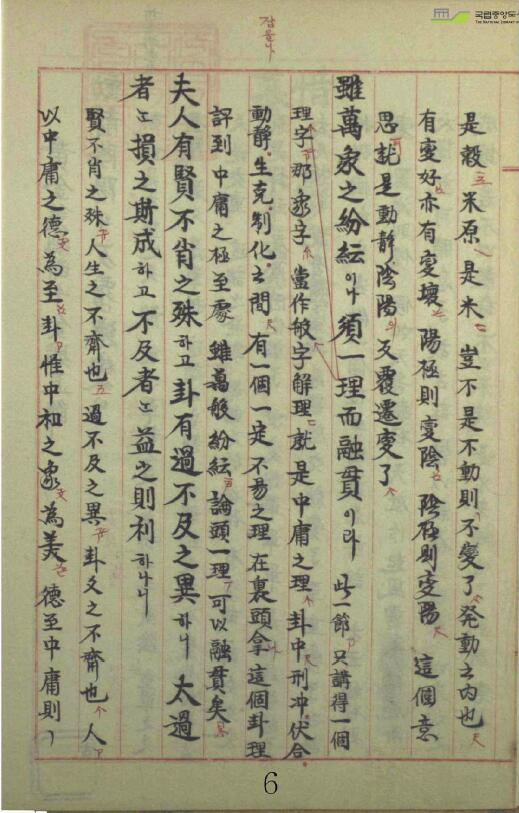 국립중앙도
THE NATIONAL LIBRARY
잡을나
是穀米原是米 豈不是不動則不變了 発動之內也
有变好亦有变壞 陽極則变陰 陰極則变陽 這個意
思說是動靜陰陽反覆遷变了
雖萬象之紛紜이나 須一理而融貫이라 此一節 只講得一個
理字 那象字 當作般字解 理就是中庸之理 卦中刑冲伏合
動靜生克制化之間 有一個一定不易之理 在裏頭拿這個卦理
評到中庸之極至處 雖萬般紛紜 論頭一理 可以融貫矣
夫人有賢不肖之殊하고 卦有過不及之異하니 太過
者는 損之斯成하고 不及者는 益之則利하나니
賢不肖之殊 人生之不齊也 過不及之異 卦爻之不齊也 人
以中庸之德為至 卦惟中和之象為美 德至中庸則
6